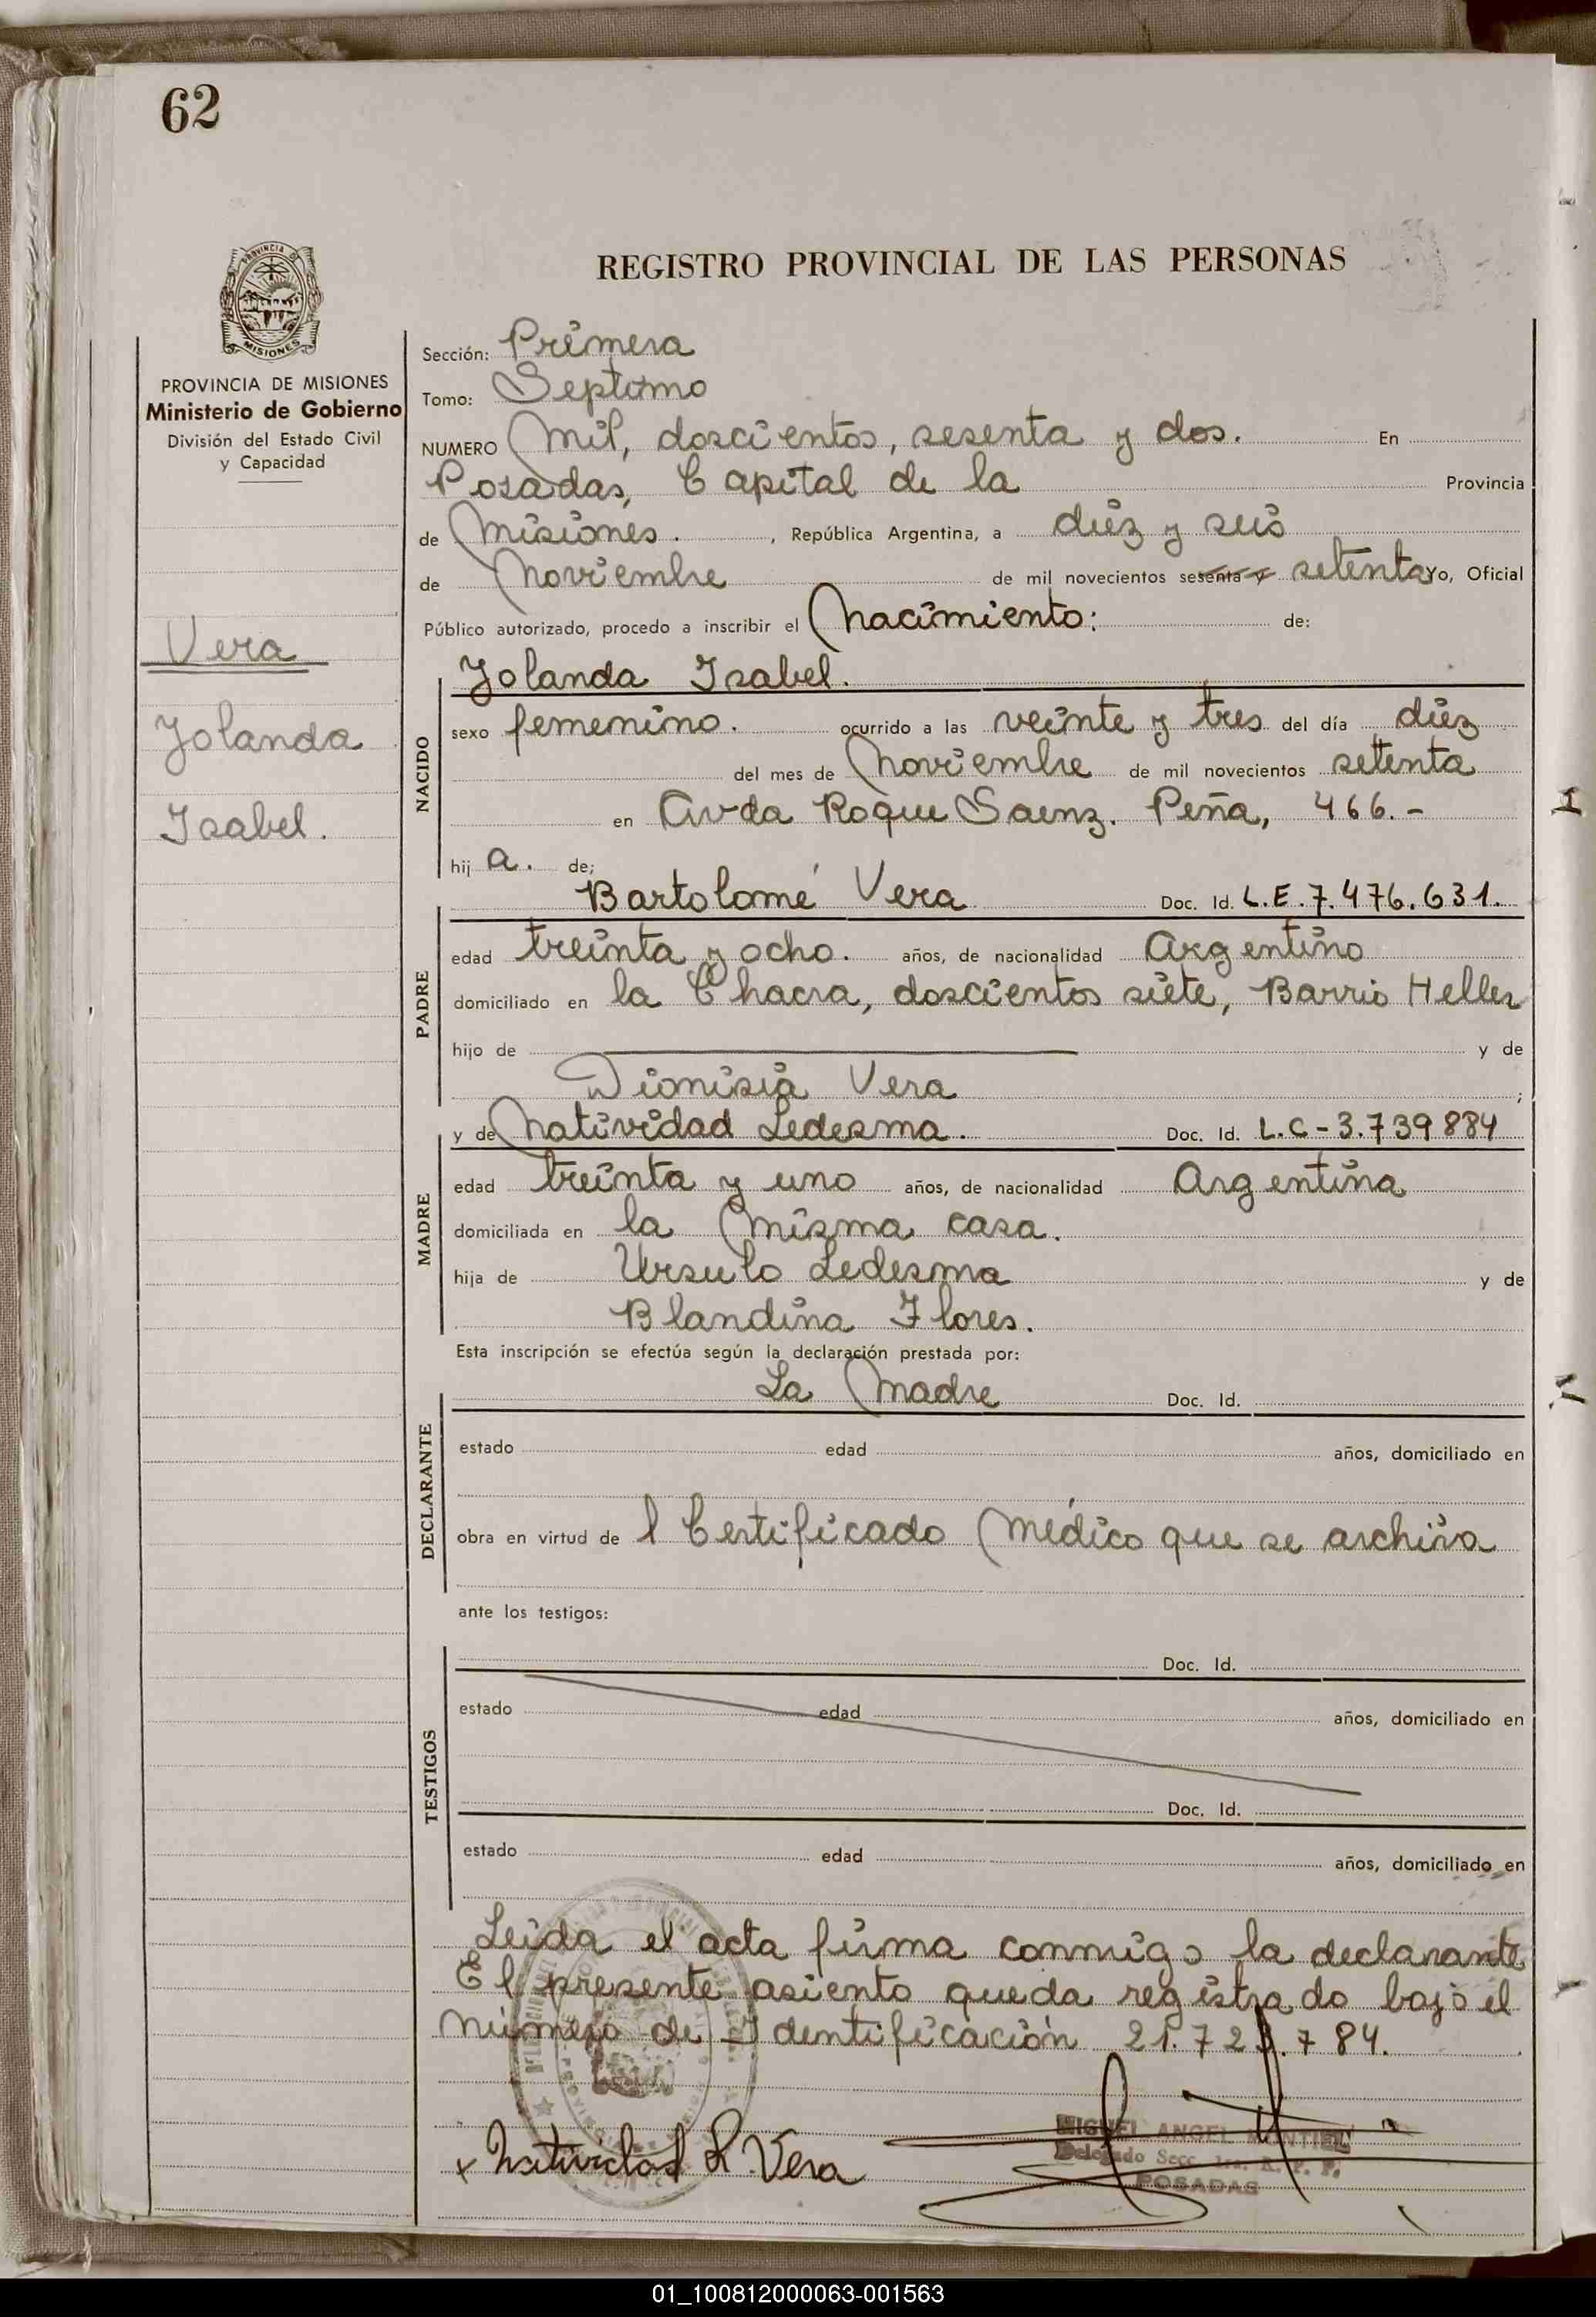 62
PROVINCIA DE MISIONES
REGISTRO PROVINCIAL DE LAS PERSONAS
PROVINCIA DE MISIONES
Ministerio de Gobierno
División del Estado Civil
y Capacidad
Vera
Yolanda
Isabel.
Sección: Primera
Tomo: Septimo
NUMERO mil, doscientos, sesenta y dos. En
Posadas, Capital de la Provincia
de Misiones. , República Argentina, a diéz y seis
de Noviembre de mil novecientos sesenta y setenta Yo, Oficial
Público autorizado, procedo a inscribir el Nacimiento: de:
Yolanda Isabel.
NACIDO
sexo femenino. ocurrido a las veinte y tres del día diéz
del mes de Noviembre de mil novecientos setenta
en Avda Roque Saenz. Peña, 466.-
hij a. de;
Bartolomé Vera Doc. Id. L.E.7.476.631.
PADRE
edad treinta y ocho. años, de nacionalidad Argentino
domiciliado en la Chacra, doscientos siete, Barrio Heller
hijo de y de
Dionisia Vera ;
y de Natividad Ledesma. Doc. Id. L.C-3.739884
MADRE
edad treinta y uno años, de nacionalidad Argentina
domiciliada en la misma casa.
hija de Ursulo Ledesma y de
Blandina Flores.
Esta inscripción se efectúa según la declaración prestada por:
La Madre Doc. Id.
DECLARANTE
estado edad años, domiciliado en
obra en virtud de l Certificado Médico que se archiva
ante los testigos:
Doc. Id.
TESTIGOS
estado edad años, domiciliado en
Doc. Id.
estado edad años, domiciliado en
Leida el acta firma conmigo la declarante
El presente asiento queda registrado bajo el
número de Identificación 21.723.784.
x Natividad L. Vera
MIGUEL ANGEL MONTIEL
Delegado Secc. 1ra. R. P. P.
POSADAS
01_100812000063-001563